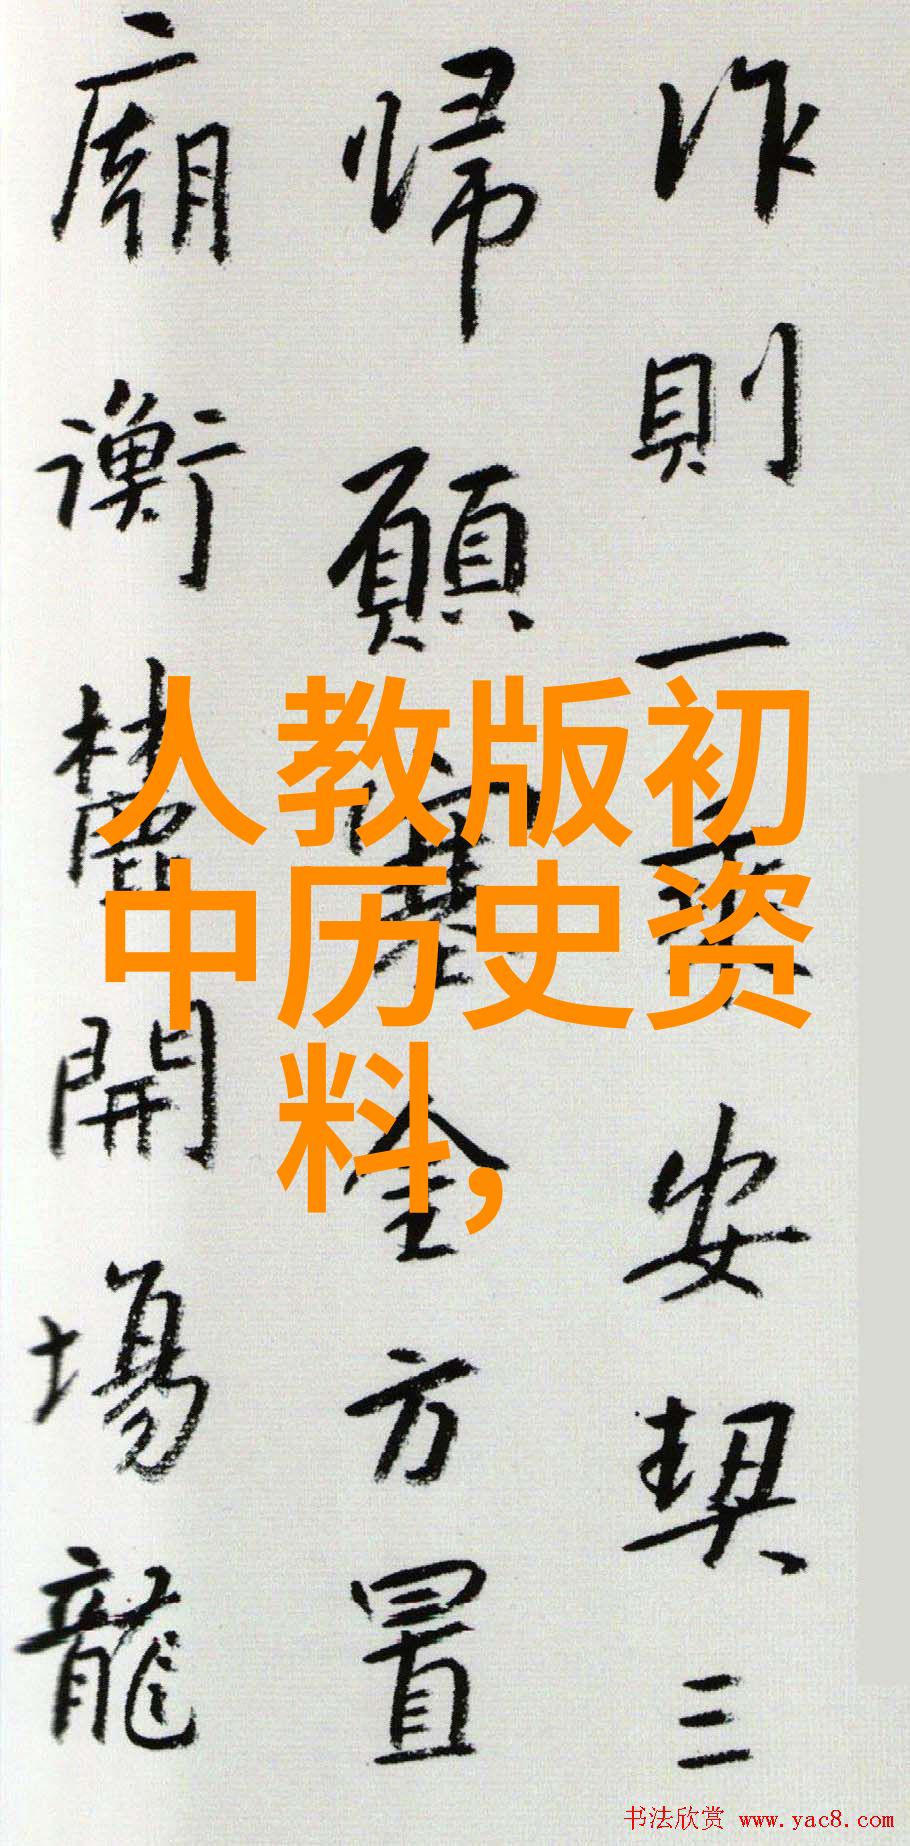 作則一安契三
歸願金方置
廟衡麓開場龍
人教版初
中历史资
料,
书法欣赏 www.yac8.com